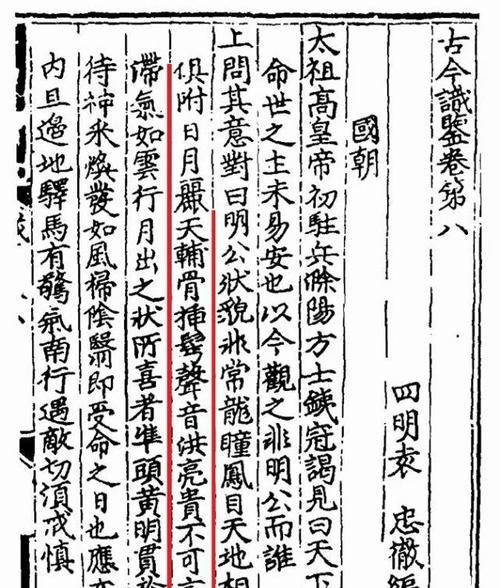 古今識鑒卷第八
四明袁 忠徹編
國朝
太祖高皇帝初駐兵滁陽方士鐵冠謁見曰天下
命世之主未易安也以今觀之非明公而誰
上問其意對曰明公狀貌非常龍瞳鳳目天地相
俱附日月麗天輔骨揷鬂聲音洪亮貴不可
滯氣如雲行月出之狀所喜者準頭黃明貫於
待神采煥發如風掃陰翳即受命之日也應
內旦邉地驛馬有驚氣南行遇敵切湏戒慎